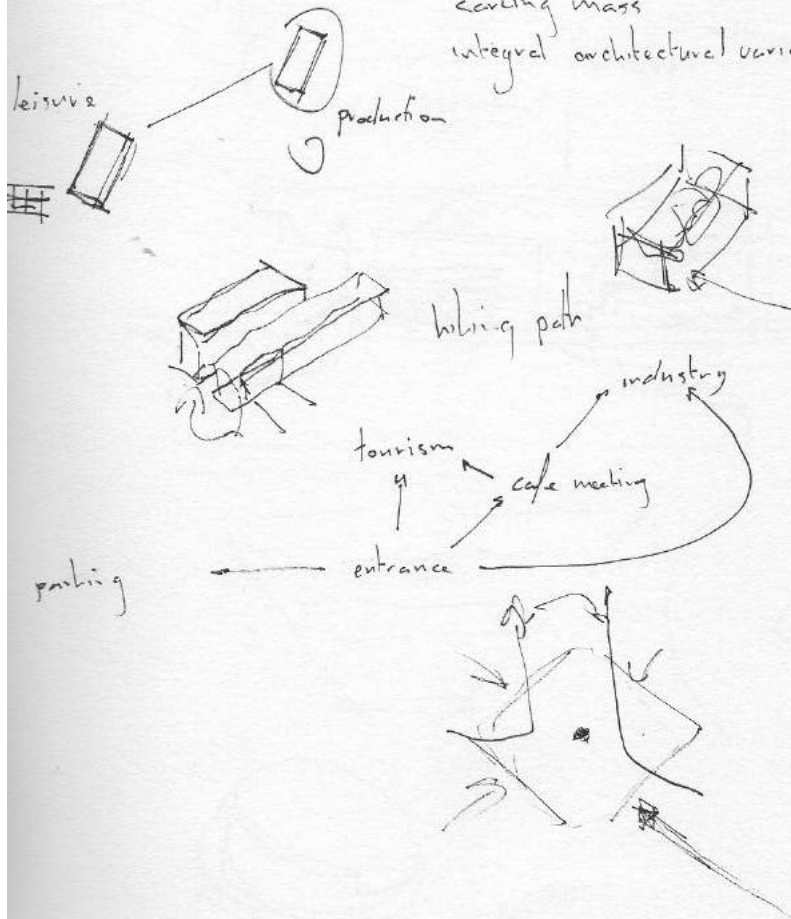 carving mass
integral architectural
leisure
production
hiking path
industry
tourism
cafe meeting
entrance
parking